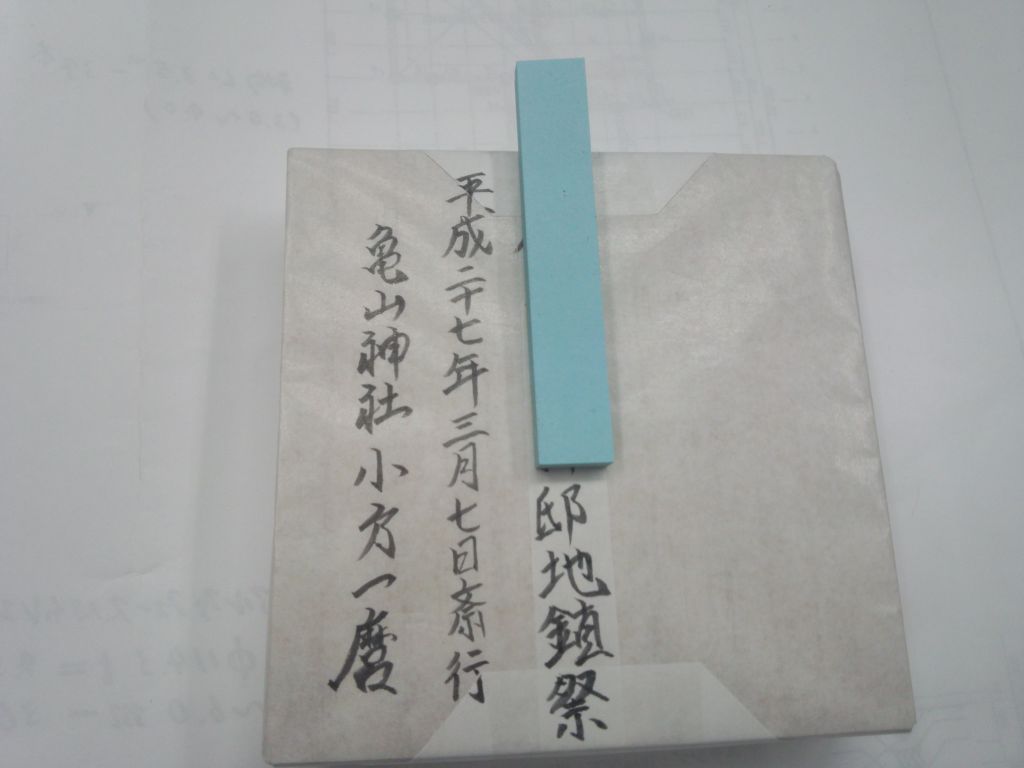 邸地鎮祭
平成二十七年三月七日斎行
亀山神社小方一麿